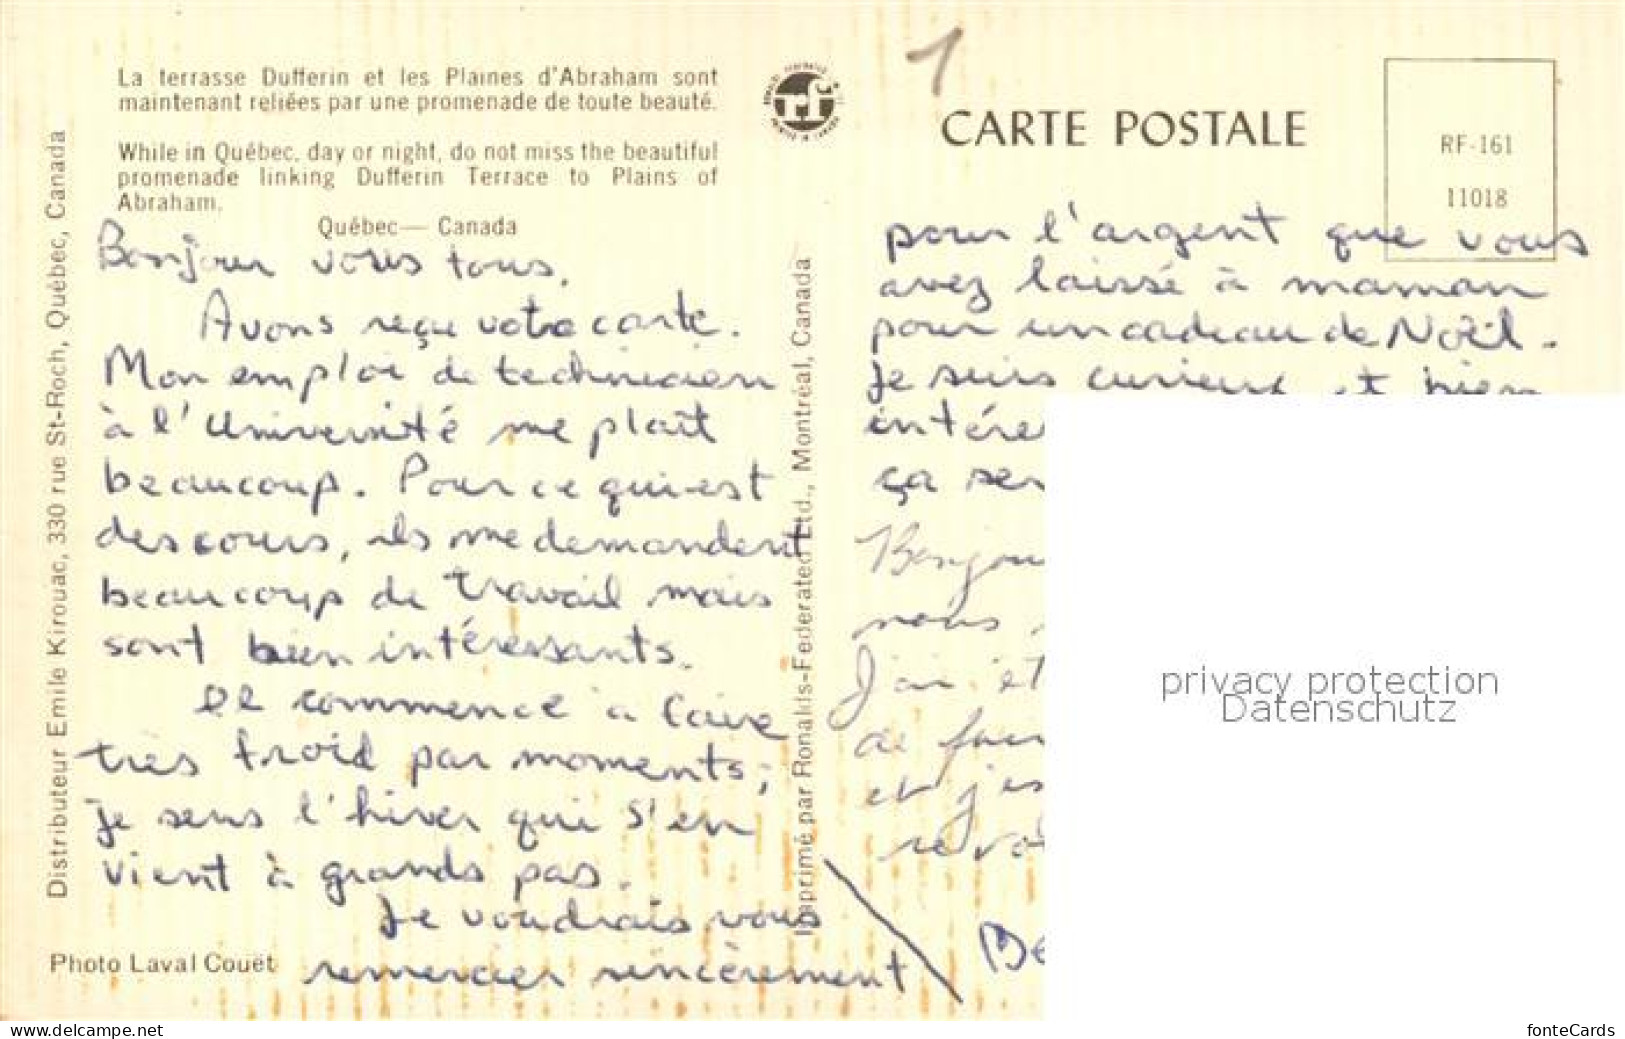 La terrasse Dufferin et les Plaines d'Abraham sont
maintenant reliées par une promenade de toute beauté.
While in Québec, day or night, do not miss the beautiful
promenade linking Dufferin Terrace to Plains of
Abraham.
Québec— Canada
Bonjour vous tous,
Avons reçu votre carte.
Mon emploi de technicien
à l'Université me plaît
beaucoup. Pour ce qui est
des cours, ils me demandent
beaucoup de travail mais
sont bien intéressants.
Il commence à faire
très froid par moments;
je sens l'hiver qui s'en
vient à grands pas.
Je voudrais vous
remercier sincèrement
Photo Laval Couët
Distributeur Emile Kirouac, 330 rue St-Roch, Québec, Canada
Imprimé par Ronalds-Federated Ltd., Montréal, Canada
rf
1
CARTE POSTALE
RF-161
11018
pour l'argent que vous
avez laissé à maman
pour un cadeau de Noël.
Je suis curieux et bien
intére
ça ser
Bonjou
nous
J'ai ét
de fair
et j'es
revo
Be
privacy protection
Datenschutz
https://www.delcampe.net
fonteCards